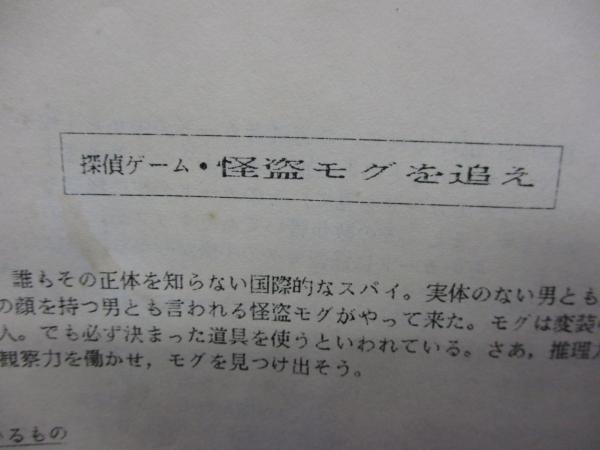 探偵ゲーム・怪盗モグを追え
誰もその正体を知らない国際的なスパイ。実体のない男とも
の顔を持つ男とも言われる怪盗モグがやって来た。モグは変装
人。でも必ず決まった道具を使うといわれている。さあ，推理
観察力を働かせ，モグを見つけ出そう。
いるもの